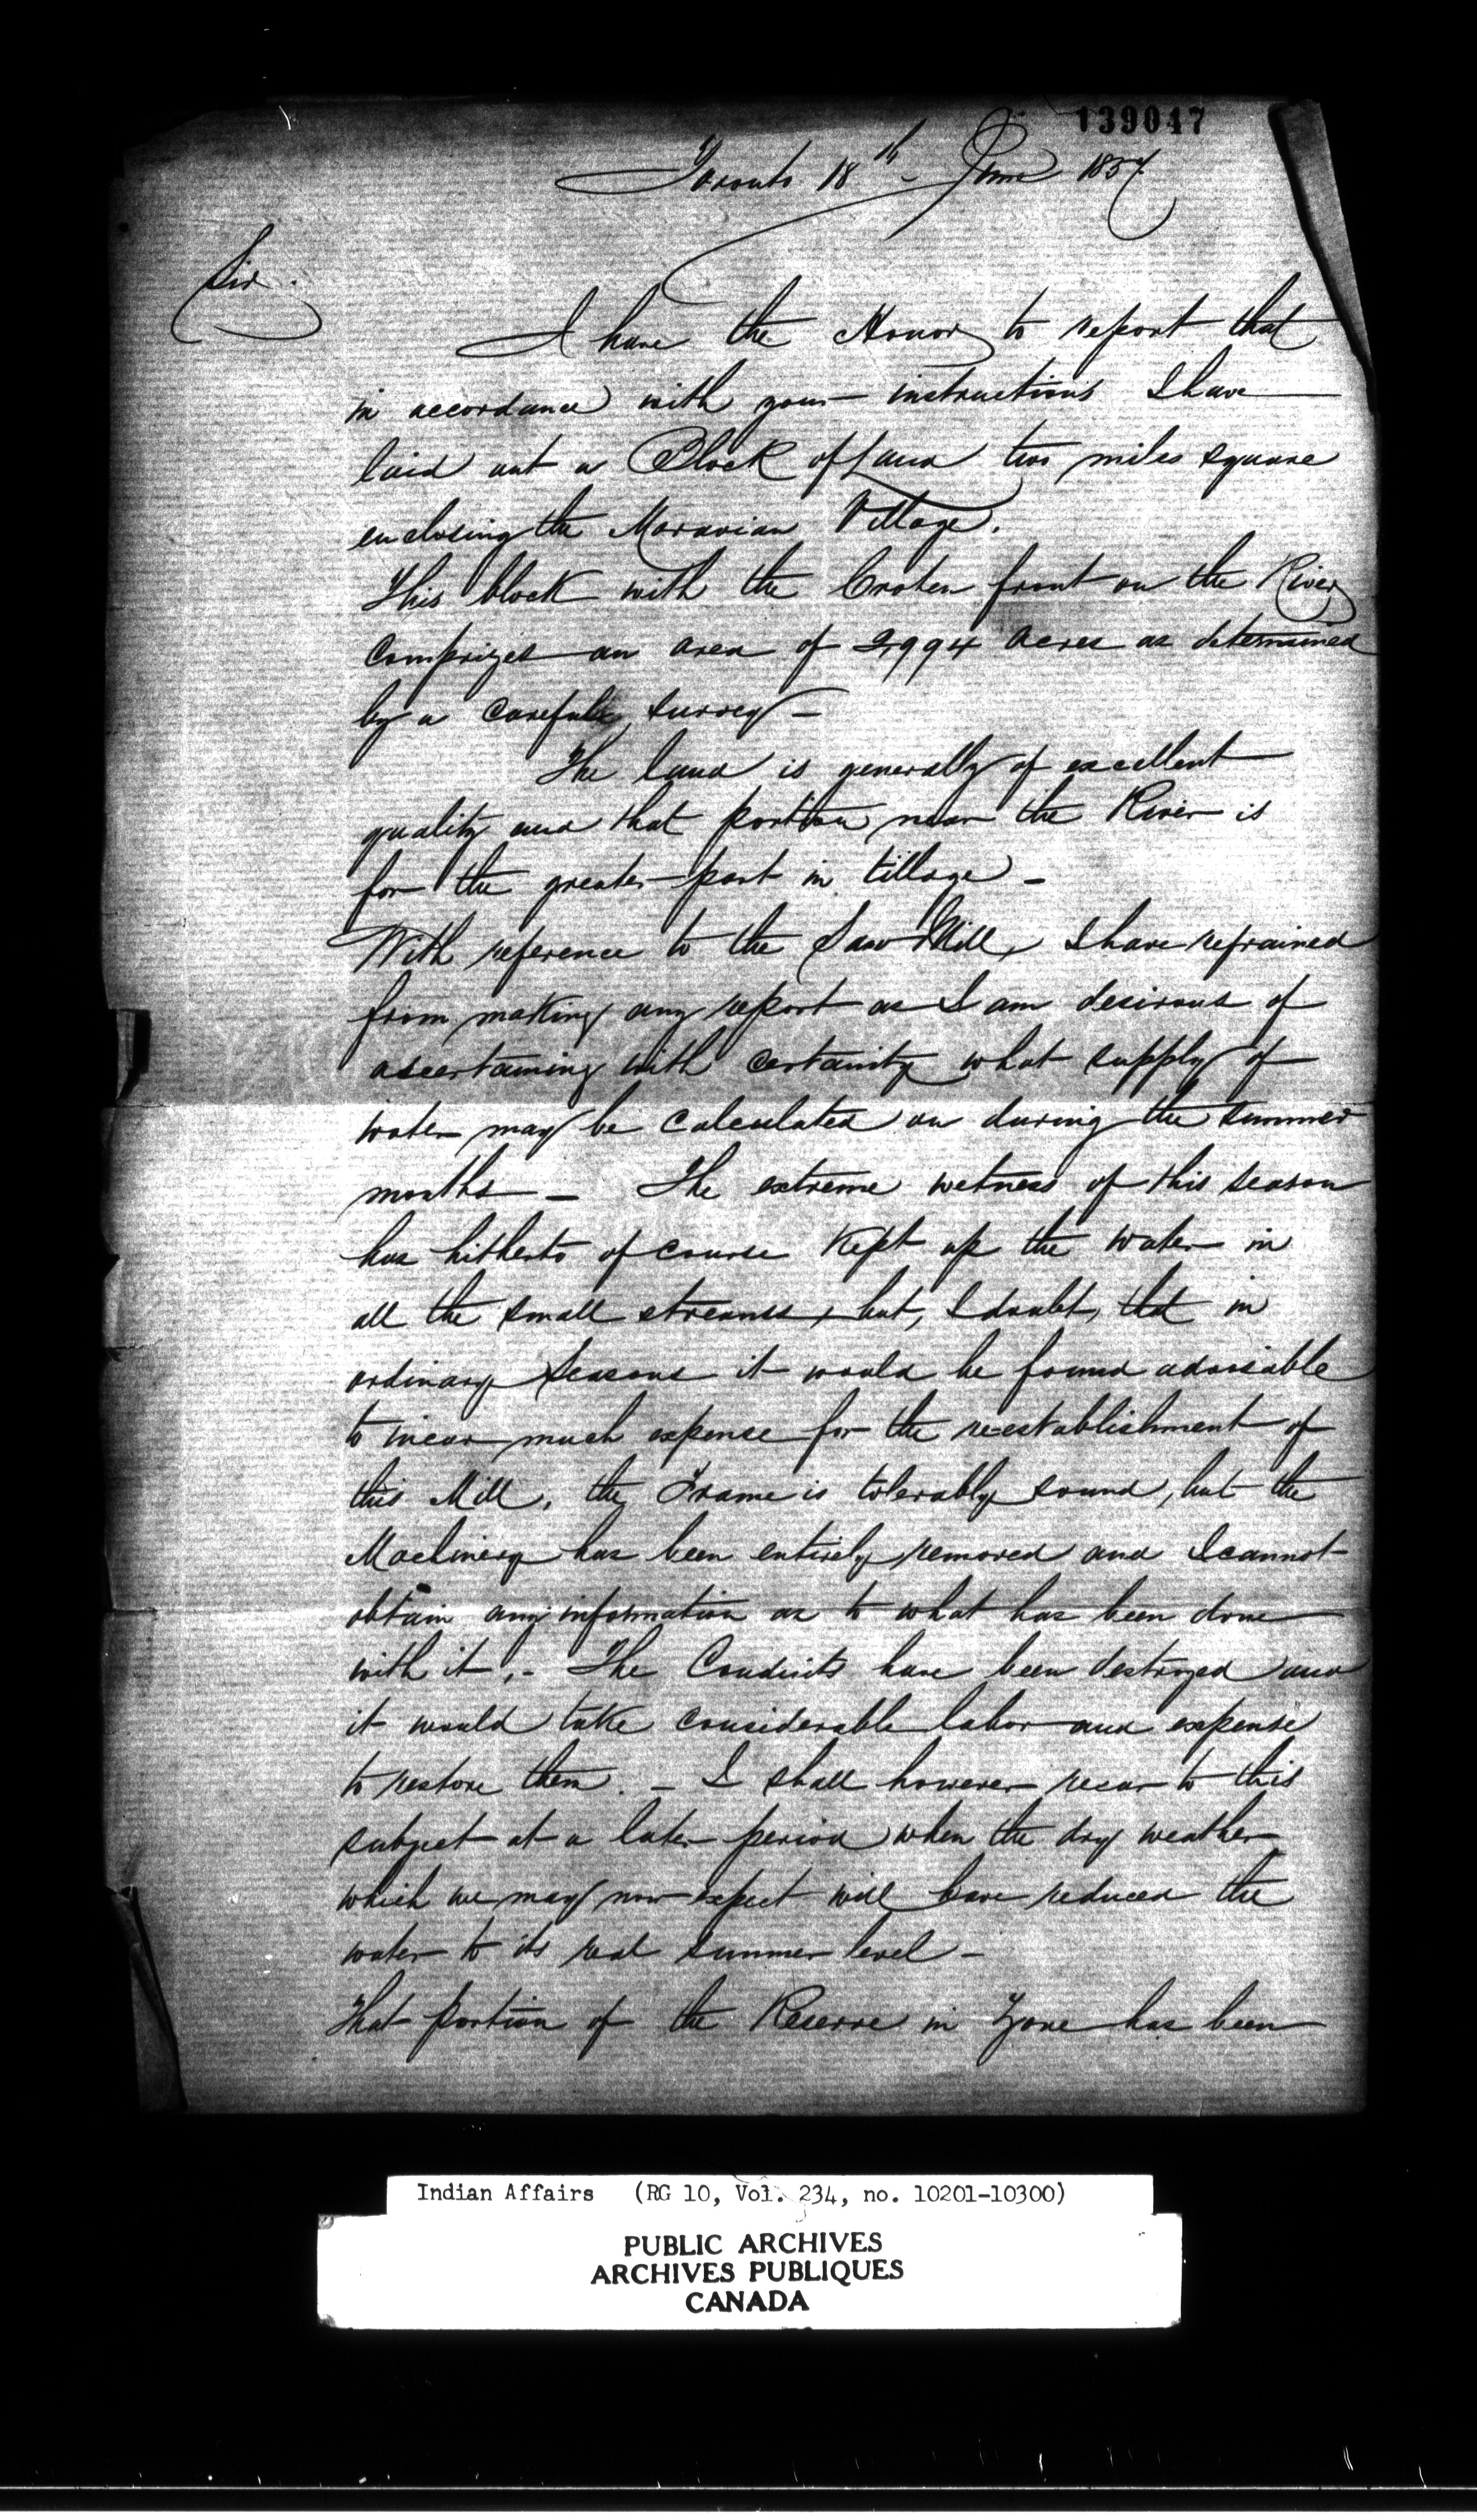 139047
Toronto 18th June 1857
Sir.
I have the Honor to report that
in accordance with your instructions I have
laid out a Block of Land two miles square
enclosing the Moravian Village.
This block with the broken front on the River
comprizes an area of 2,994 acres as determined
by a careful survey -
The land is generally of excellent
quality and that portion near the River is
for the greater part in tillage -
With reference to the Saw Mill, I have refrained
from making any report as I am desirous of
ascertaining with certainty what supply of
water may be calculated on during the summer
months - The extreme wetness of this season
has hitherto of course kept up the water in
all the small streams, but, I doubt, that in
ordinary Seasons it would be found advisable
to incur much expense for the re-establishment of
this Mill. the Frame is tolerably sound, but the
Machinery has been entirely removed and I cannot
obtain any information as to what has been done
with it. - The Conduits have been destroyed and
it would take considerable labor and expense
to restore them. - I shall however recur to this
subject at a later period when the dry weather
which we may now expect will have reduced the
water to its real summer level -
That portion of the Reserve in Zone has been
Indian Affairs (RG 10, Vol. 234, no. 10201-10300)
PUBLIC ARCHIVES
ARCHIVES PUBLIQUES
CANADA